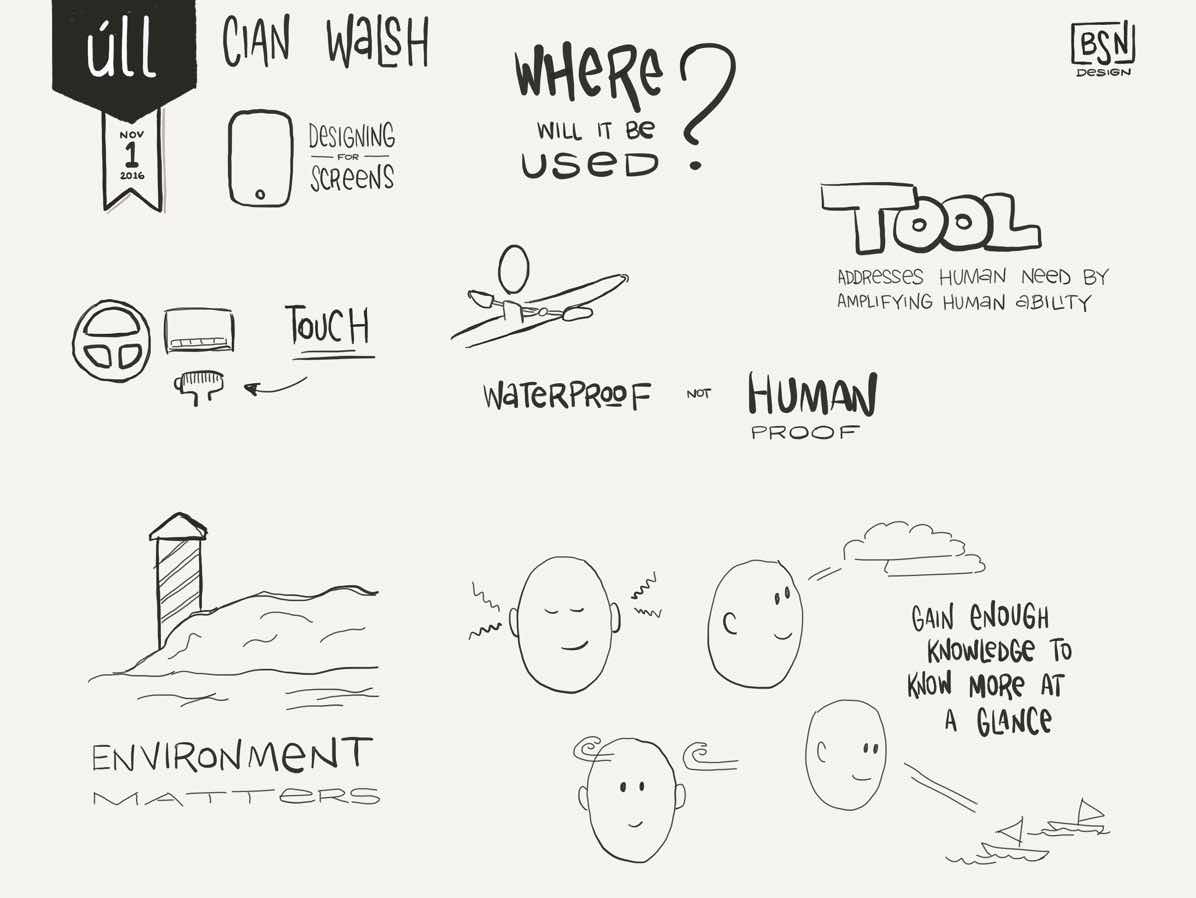 úll
CIAN WALSH
NOV
1
2016
DESIGNING
FOR
SCREENS
WHERE
WILL IT BE
USED?
BSN
DESIGN
TOOL
ADDRESSES HUMAN NEED BY
AMPLIFYING HUMAN ABILITY
TOUCH
WATERPROOF NOT HUMAN
PROOF
ENVIRONMENT
MATTERS
GAIN ENOUGH
KNOWLEDGE TO
KNOW MORE AT
A GLANCE